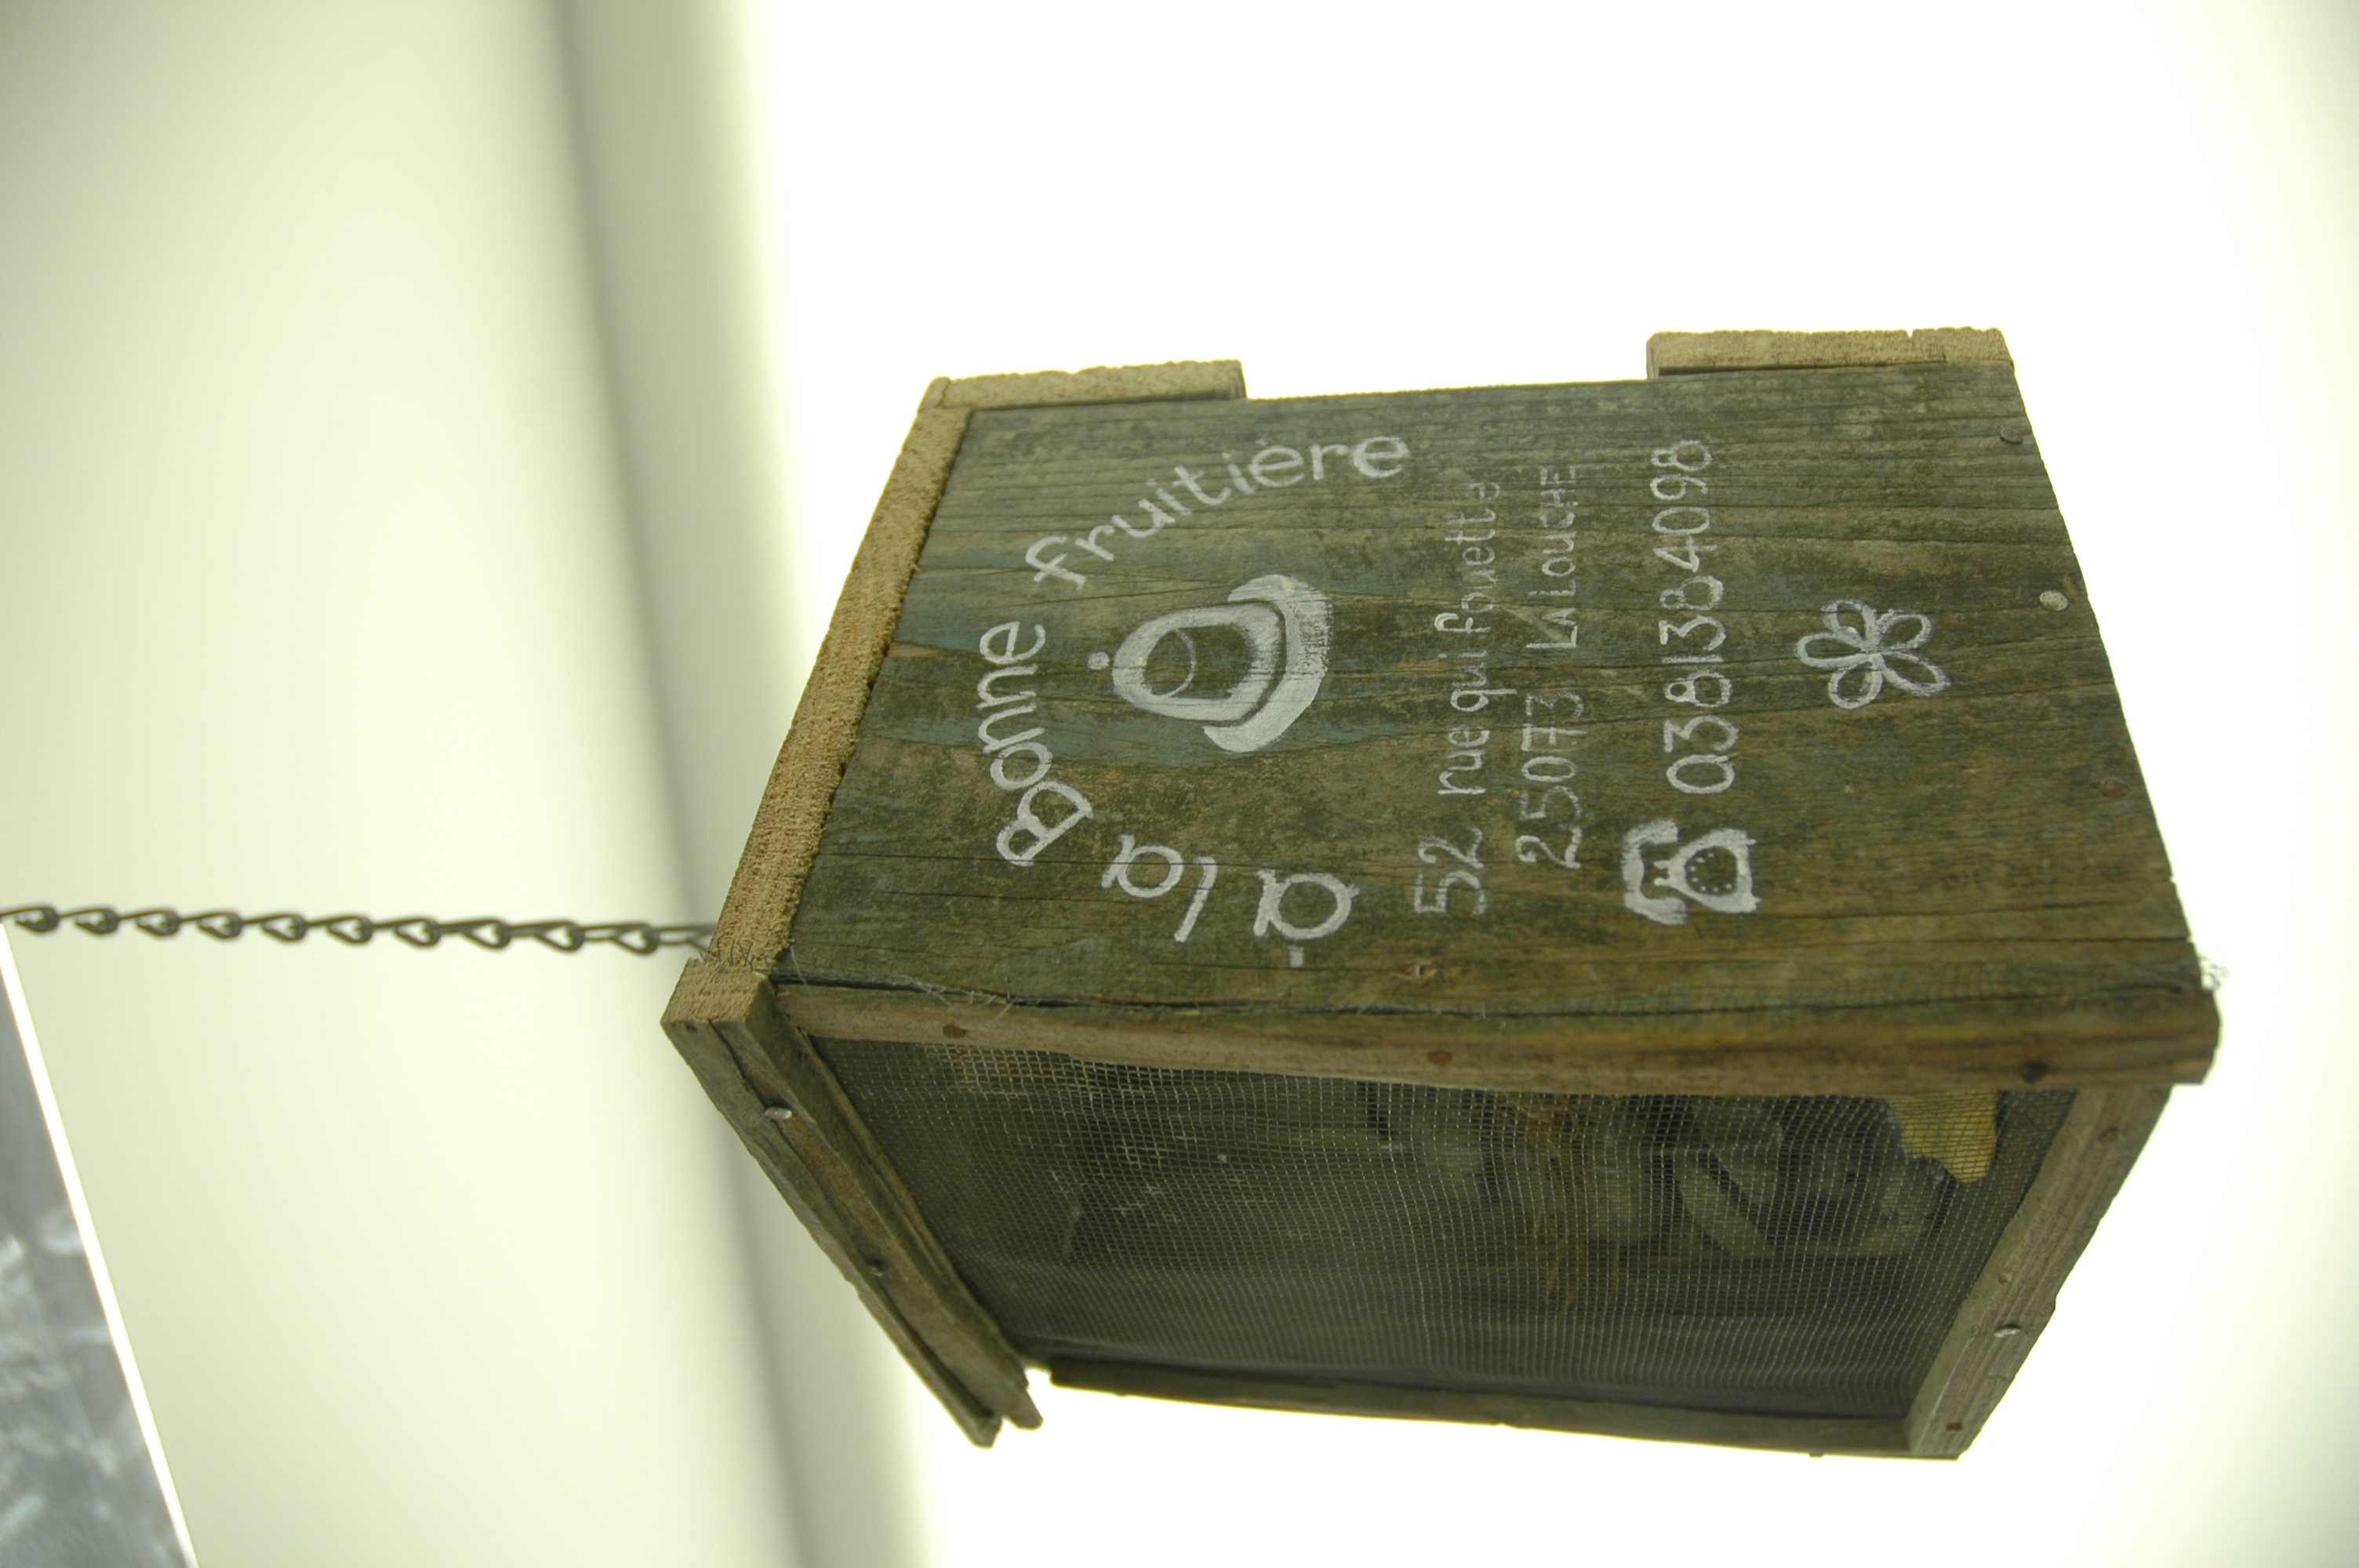 à la Bonne fruitière
52 rue qui fouette
25073 LA LOUCHE
0381384098